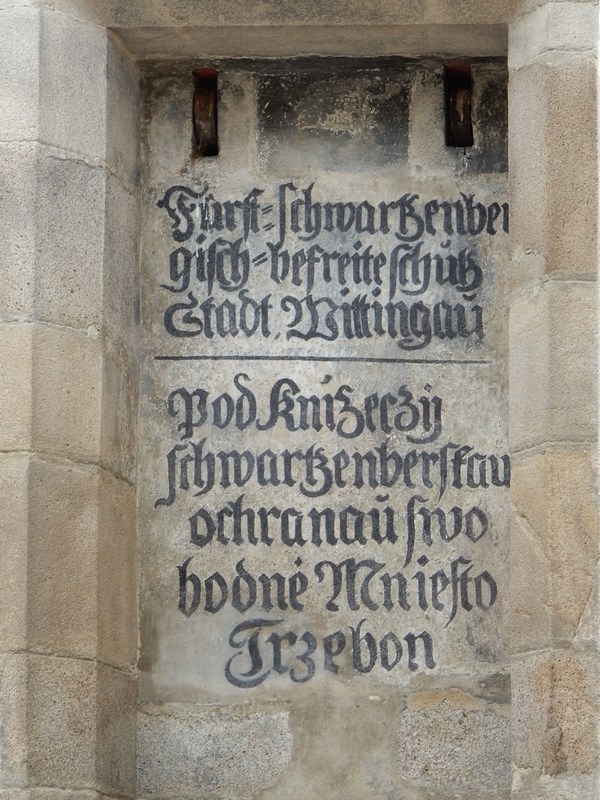 Fürst=schwartzenber
gisch=befreite schutz
Stadt Wittingaŭ
Pod Knižeczÿ
schwartzenberskau
ochranaŭ swo
bodnė Mniesto
Trzebon